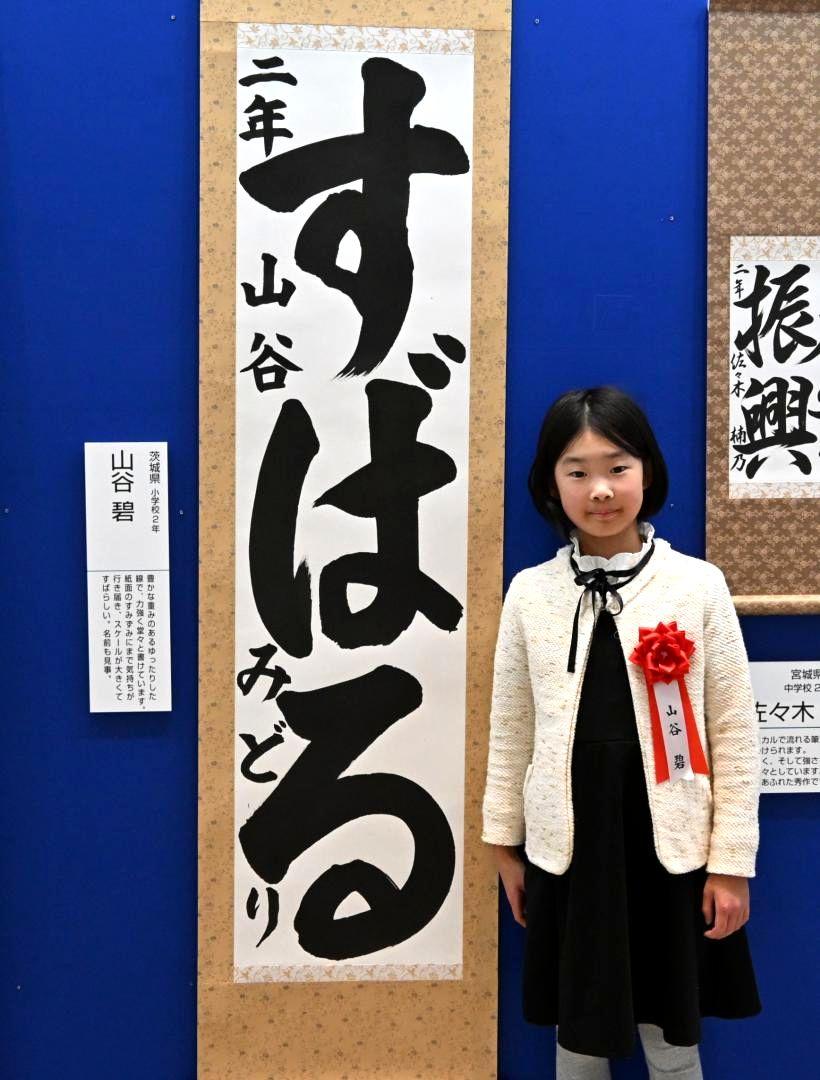 すばる
二年 山谷 みどり
茨城県 小学校2年
山谷 碧
豊かな重みのあるゆったりした
線で、力強く堂々と書けています。
紙面のすみずみにまで気持ちが
行き届き、スケールが大きくて
すばらしい。名前も見事。
山谷 碧
振興
二年 佐々木 楠乃
宮城県
中学校2
佐々木
カルで流れる筆
けられます。
く、そして強さ
々としています。
あふれた秀作で